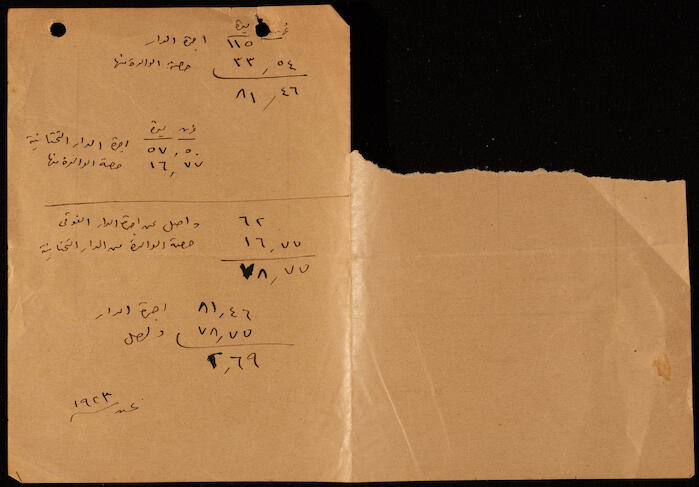 غرش ليرة
١١٥ اجرة الدار
٣٣٫٥٤ حصة الوالدة منها
٨١٫٤٦
غرش ليرة
٥٧٫٥٠ اجرة الدار التحتانية
١٦٫٧٧ حصة الوالدة منها
٦٢ واصل من اجرة الدار الفوقى
١٦٫٧٧ حصة الوالدة من الدار التحتانية
٧٨٫٧٧
٨١٫٤٦ اجرة الدار
٧٨٫٧٧ واصل
٢٫٦٩
عن سنة ١٩٢٣